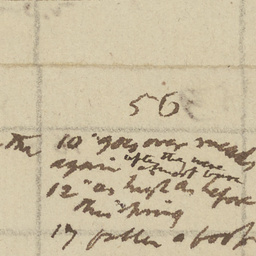 56
the 10 "goes over meads
again after they were almost bare
12 "as high as before
this "spring
17 fallen a foot